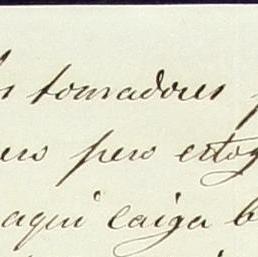 tomadores
ero pero estoy
aqui caiga b